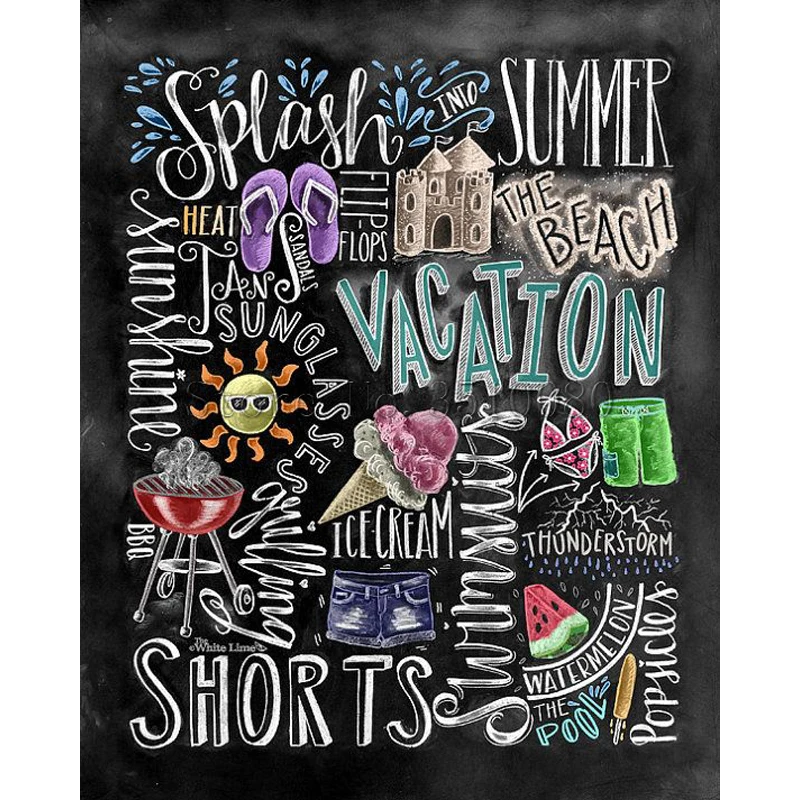 Splash INTO SUMMER
Sunshine
HEAT
FLIP-FLOPS
SANDALS
THE BEACH
TANS
SUNGLASSES
VACATION
Swimsuits
ICE CREAM
BBQ
grilling
THUNDERSTORM
WATERMELON
THE POOL
Popsicles
The White Lime
SHORTS